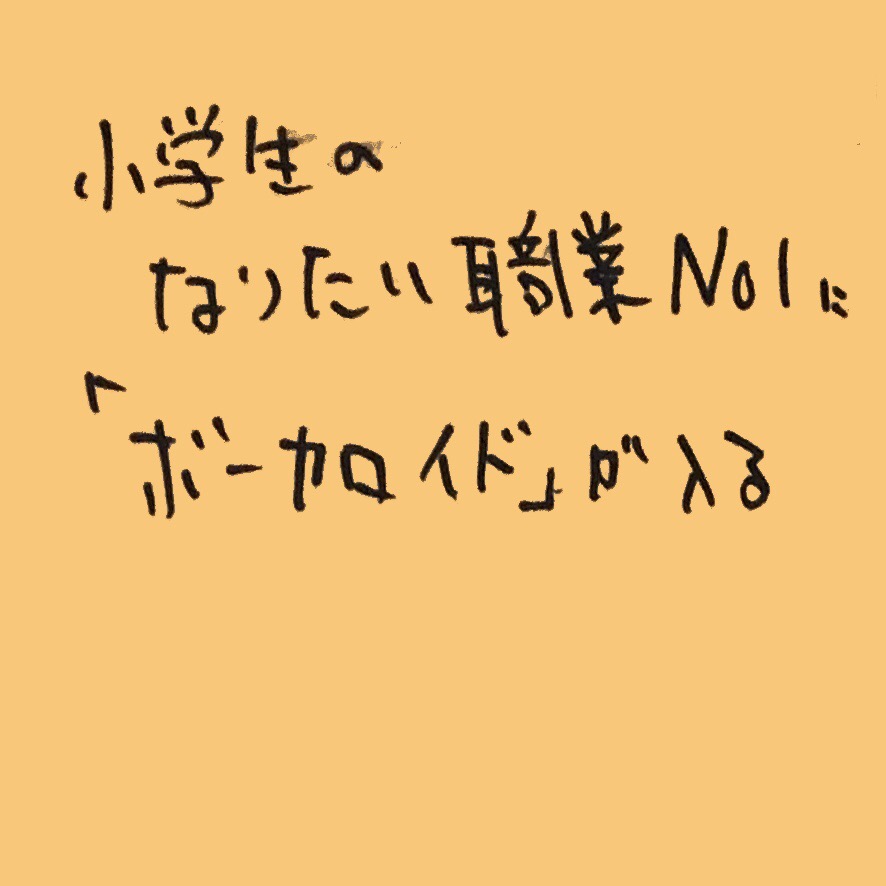 小学生の
なりたい職業No1に
「ボーカロイド」が入る